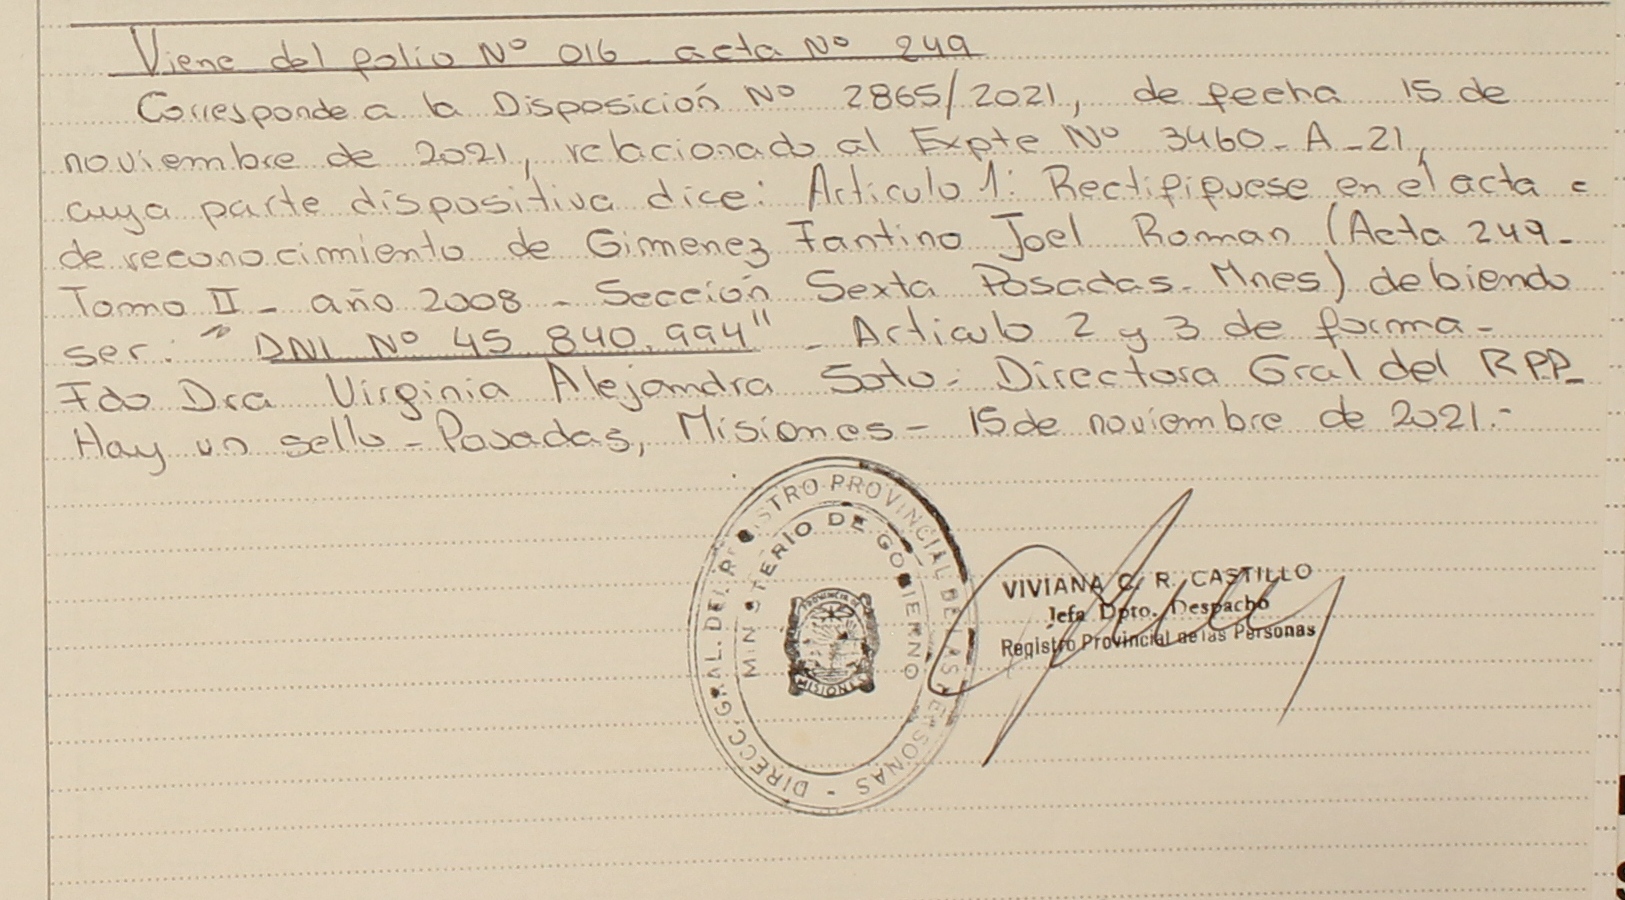 Viene del folio Nº 016 - acta Nº 249
Corresponde a la Disposición Nº 2865/2021, de fecha 15 de
noviembre de 2021, relacionado al Expte Nº 3460-A-21,
cuya parte dispositiva dice: Articulo 1: Rectifiquese en el acta =
de reconocimiento de Gimenez Fantino Joel Roman (Acta 249-
Tomo II - año 2008 - Sección Sexta Posadas. Mnes) debiendo
ser: "DNI Nº 45.840.994" - Articulo 2 y 3 de forma -
Fdo Dra Virginia Alejandra Soto - Directora Gral del RPP-
Hay un sello - Posadas, Misiones - 15 de noviembre de 2021.-
DIRECC. GRAL. DEL REGISTRO PROVINCIAL DE LAS PERSONAS -
MINISTERIO DE GOBIERNO
PROVINCIA DE
MISIONES
VIVIANA C. R. CASTILLO
Jefa Dpto. Despacho
Registro Provincial de las Personas